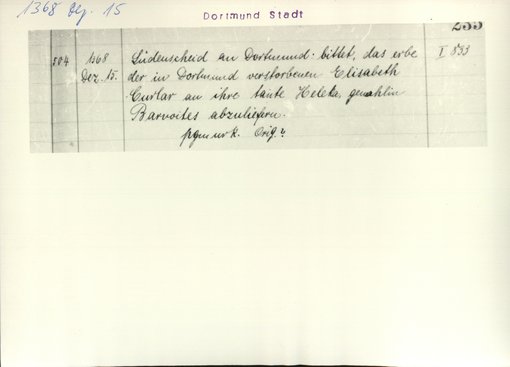 1368 Dez. 15
Dortmund Stadt
255
504 1368 Dez. 15.
Lüdenscheid an Dortmund: bittet, das erbe
der in Dortmund verstorbenen Elisabeth
Curlar an ihre tante Heleka, gemahlin
Barvoites abzuliefern.
pgmurk. Orig.
I 833